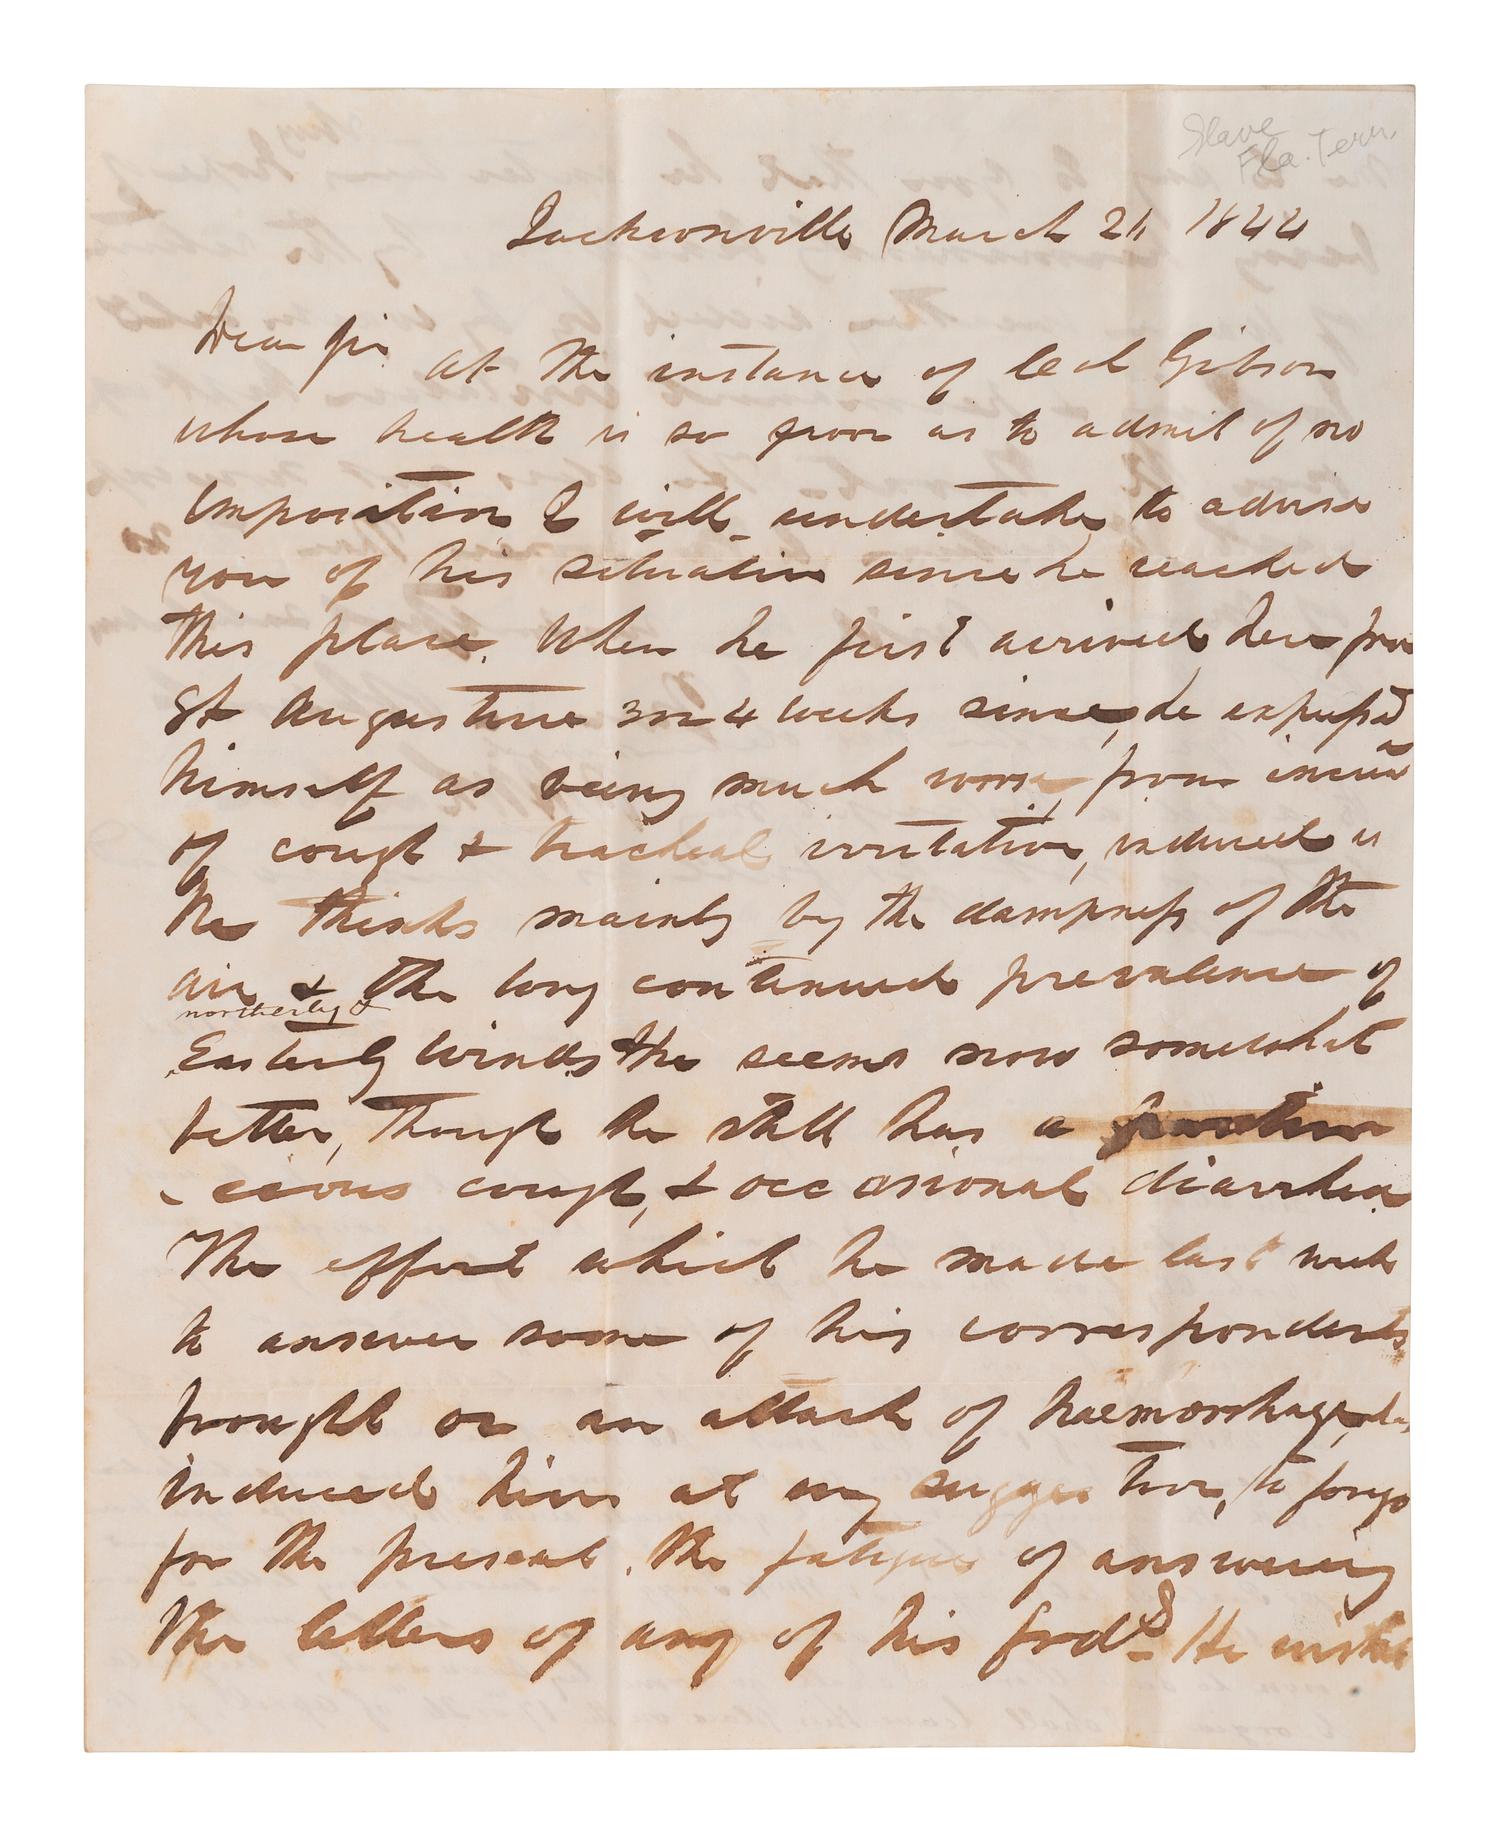 Slave
Fla. Terr.
Jacksonville March 21 1844
Dear Sir
At the instance of Col Gibson
whose health is so poor as to admit of no
imposition I will undertake to advise
you of his situation since he reached
this place. When he first arrived here from
St Augustine 3 or 4 weeks since, he expressd
himself as being much worse, from increase
of cough & tracheal irritation, induced as
he thinks mainly by the dampness of the
air & the long continued prevalence of
northerly &
Easterly winds. He seems now somewhat
better, though he still has a
cough, & occasional diarrhea
The effort which he made last week
to answer some of his correspondents
brought on an attack of haemorrhage,
induced him at my suggestion, to forego
for the present, the fatigue of answering
the letters of any of his frds. He wishes